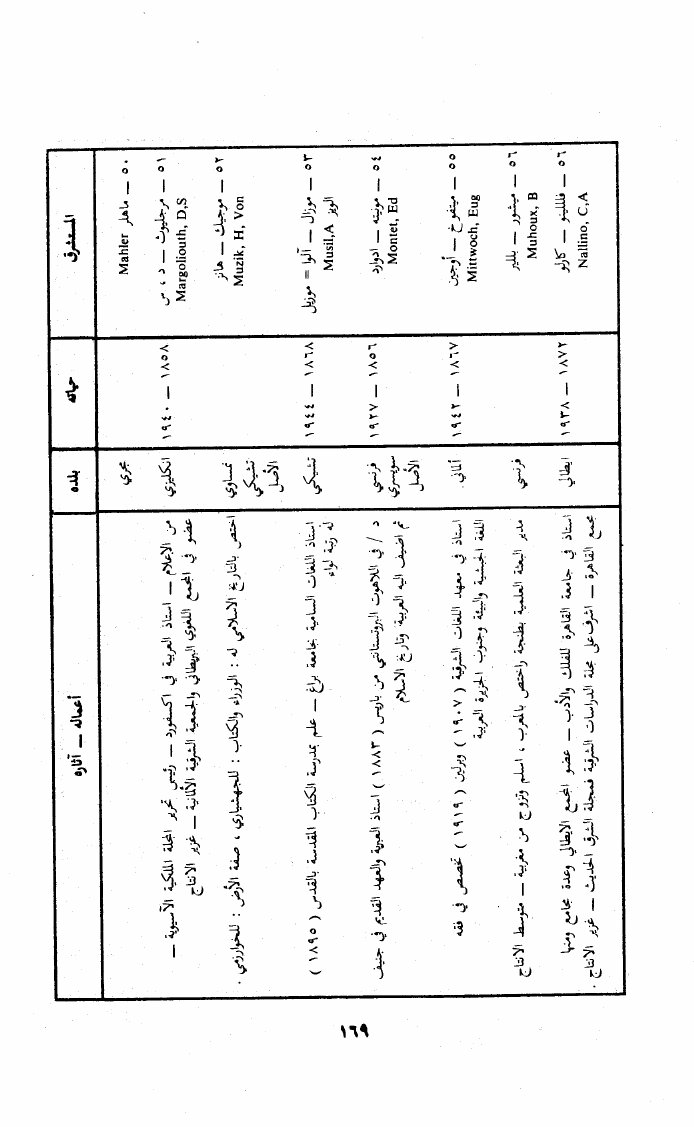 المستشرق	حياته	بلده	أعماله – آثاره
٥٠ – ماهلر Mahler	مجري
٥١ – مرجليوث – د ، س	١٨٥٨ – ١٩٤٠	انكليزي	من الاعلام – استاذ العربية في اكسفورد – رئيس تحرير المجلة الملكية الآسيوية –
Margoliouth, D,S	عضو في المجمع اللغوي البريطاني والجمعية الشرقية الألمانية – غزير الانتاج
٥٢ – موجيك – هانز	نمساوي	اختص بالتاريخ الاسلامي له : الوزراء والكتاب : للجهشياري ، صفة الأرض : للخوارزمي .
Muzik, H, Von	تشيكي
الأصل
٥٣ – موزال – آلوا = موزيل	١٨٦٨ – ١٩٤٤	تشيكي	استاذ اللغات السامية بجامعة براغ – علم بمدرسة الكتاب المقدسة بالقدس ( ١٨٩٥ )
الويز Musil,A	له رتبة لواء
٥٤ – مونتيه – ادوارد	١٨٥٦ – ١٩٢٧	فرنسي	د / في اللاهوت البروتستانتي من باريس ( ١٨٨٣ ) استاذ العبرية والعهد القديم في جنيف
Montet, Ed	سويسري	ثم اضيف اليه العربية وتاريخ الاسلام
الأصل
٥٥ – ميتفوخ – أوجين	١٨٦٧ – ١٩٤٢	ألماني	استاذ في معهد اللغات الشرقية ( ١٩٠٧ ) وبرلين ( ١٩١٩ ) تخصص في فقه
Mittwoch, Eug	اللغة الحبشية والبيئة وجنوب الجزيرة العربية
٥٦ – ميشور – بللير	فرنسي	مدير البعثة العلمية بطنجة واختص بالمغرب ، اسلم وتزوج من مغربية – متوسط الانتاج
Muhoux, B
٥٦ – فللينو – كارلو	١٨٧٢ – ١٩٣٨	ايطالي	استاذ في جامعة القاهرة للفلك والأدب – عضو المجمع الايطالي وعدة مجامع ومنها
Nallino, C,A	مجمع القاهرة – اشرف على مجلة الدراسات الشرقية فمجلة الشرق الحديث – غزير الانتاج .
١٦٩